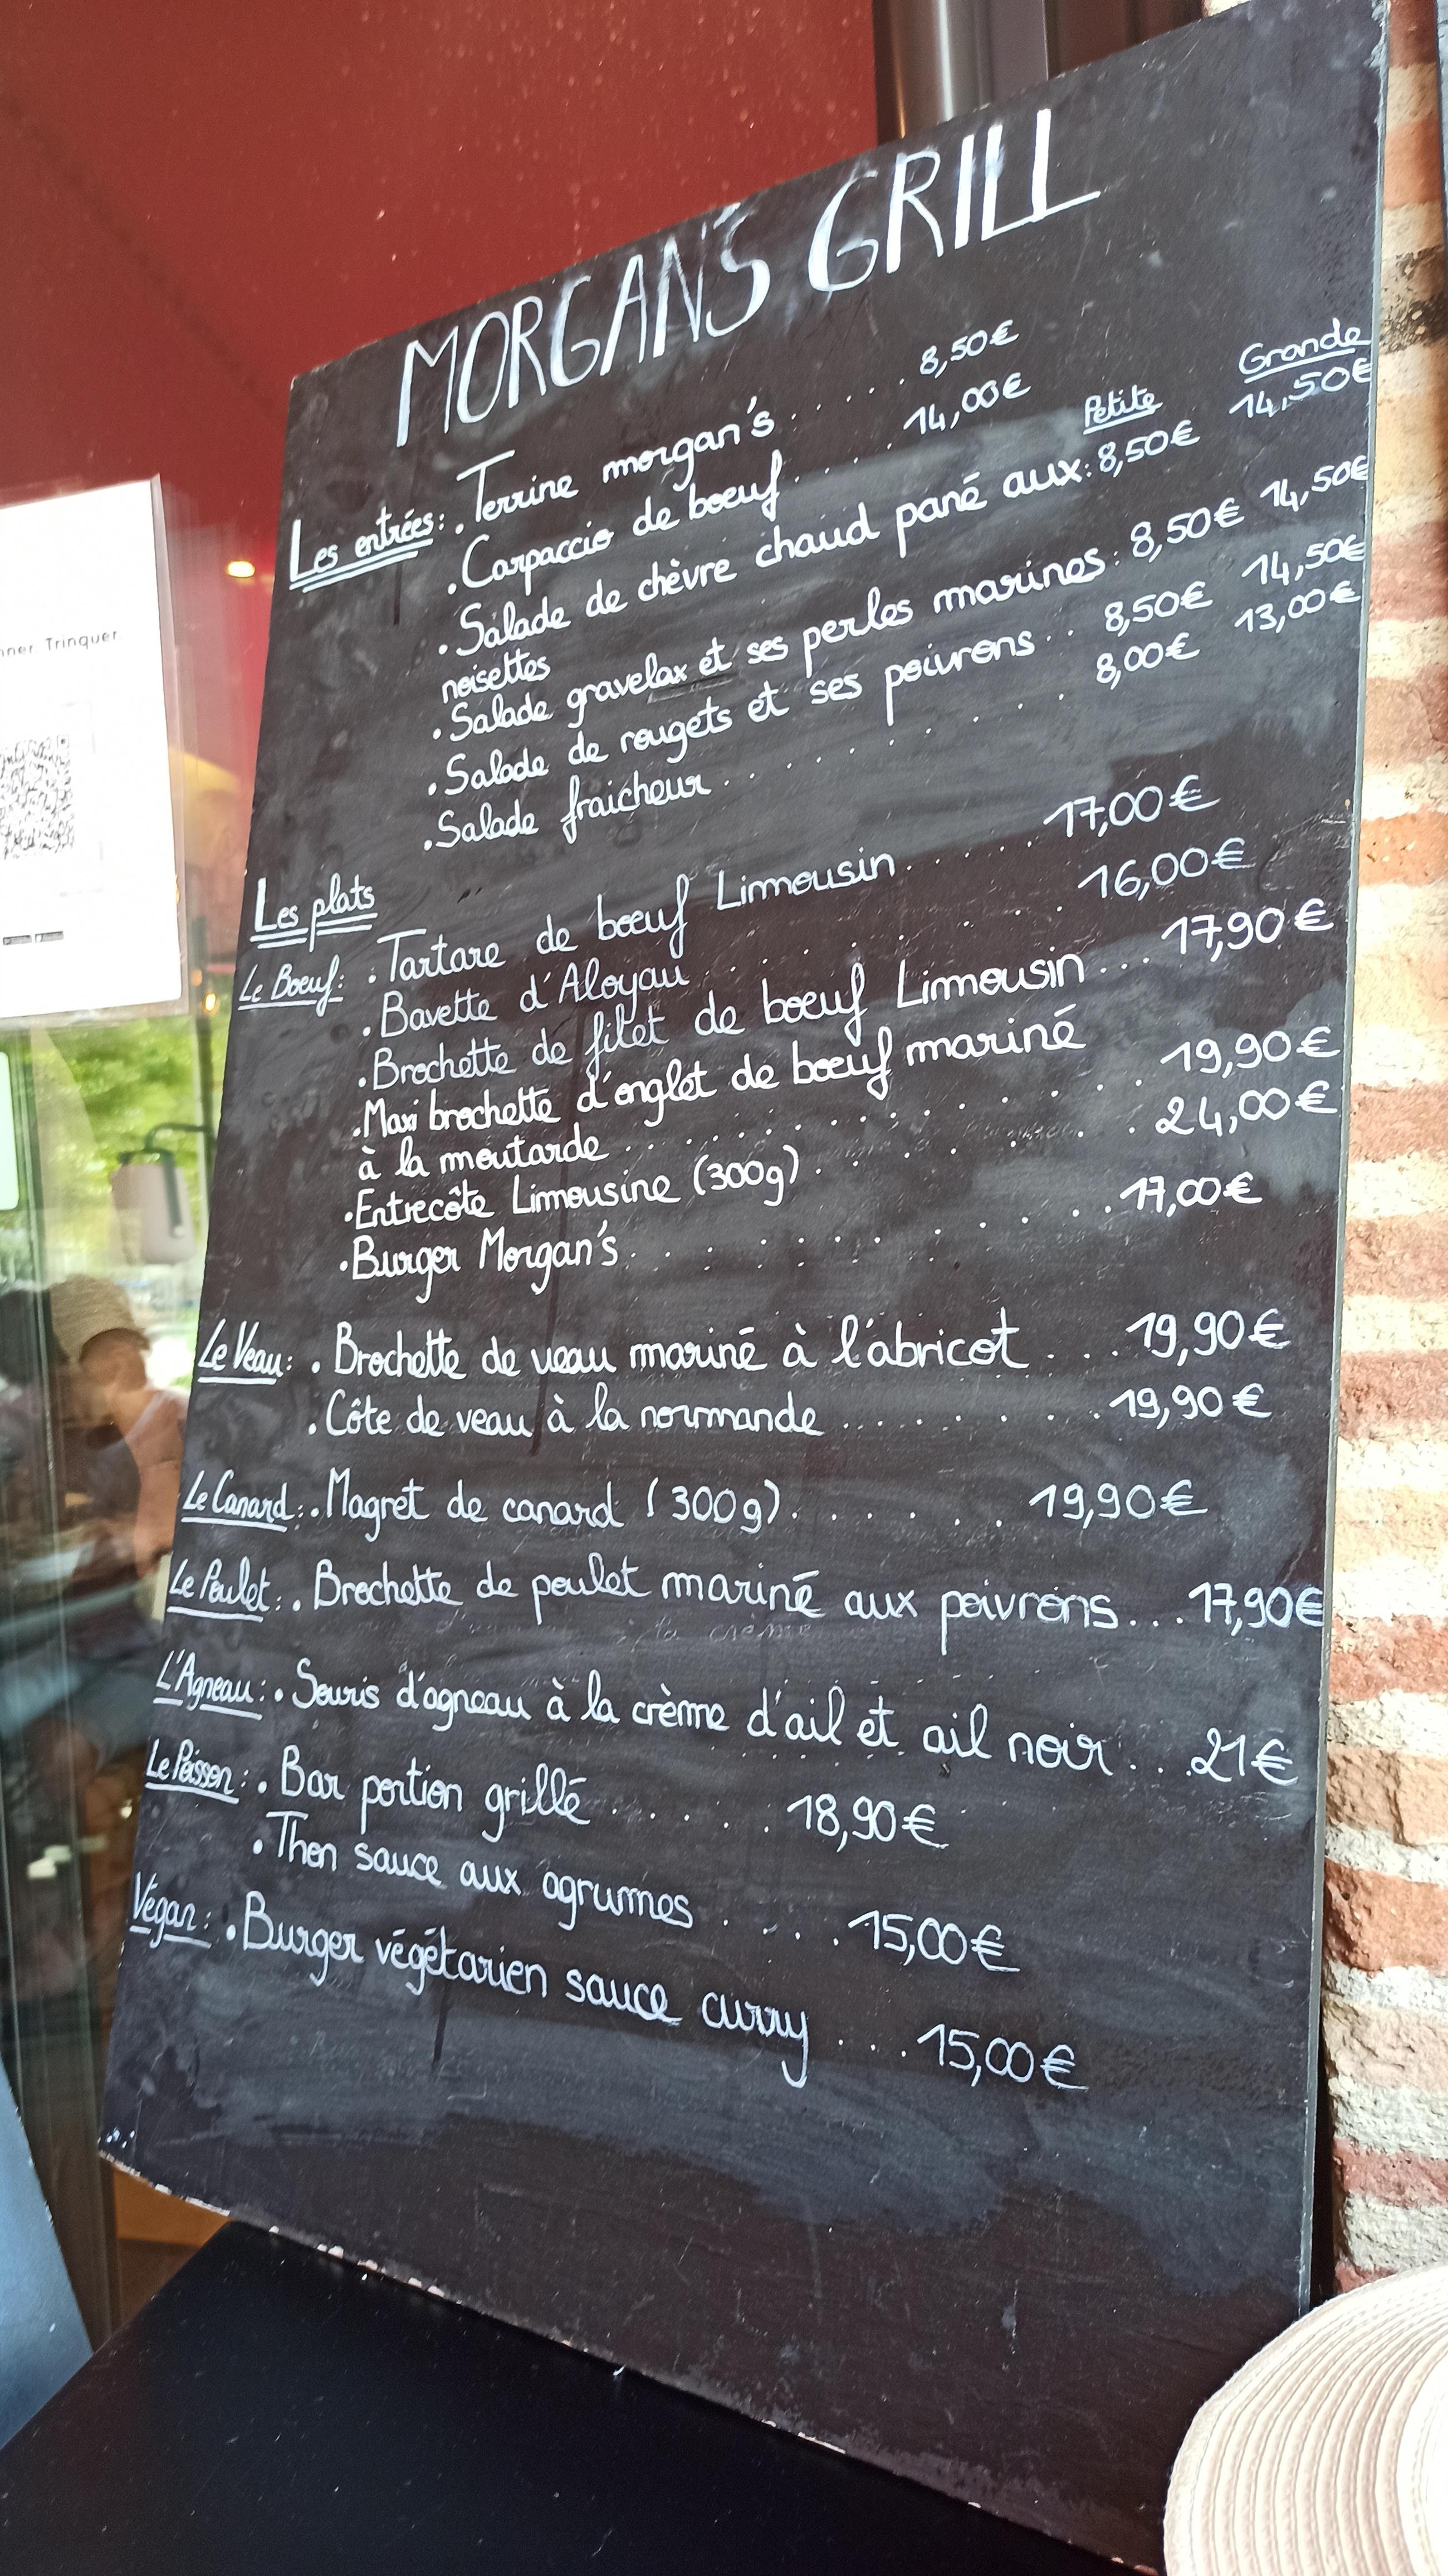 MORGAN'S GRILL
Les entrées: . Terrine morgan's ..... 8,50€
. Carpaccio de bœuf ... 14,00€
Petite Grande
. Salade de chèvre chaud pané aux: 8,50€ 14,50€
noisettes
. Salade gravelax et ses perles marines: 8,50€ 14,50€
. Salade de rougets et ses poivrons .. 8,50€ 14,50€
. Salade fraicheur ........ 8,00€ 13,00€
Les plats
Le Boeuf: . Tartare de bœuf Limousin ..... 17,00€
. Bavette d'Aloyau ......... 16,00€
. Brochette de filet de bœuf Limousin ... 17,90€
. Maxi brochette d'onglet de bœuf mariné
à la moutarde ............ 19,90€
. Entrecôte Limousine (300g) ....... 24,00€
. Burger Morgan's ............ 17,00€
Le Veau: . Brochette de veau mariné à l'abricot ... 19,90€
. Côte de veau à la normande ........ 19,90€
Le Canard: . Magret de canard (300g) ...... 19,90€
Le Poulet: . Brochette de poulet mariné aux poivrons ... 17,90€
L'Agneau: . Souris d'agneau à la crème d'ail et ail noir ... 21€
Le Poisson: . Bar portion grillé ..... 18,90€
. Thon sauce aux agrumes .... 15,00€
Végan: . Burger végétarien sauce curry ... 15,00€
Trinquer